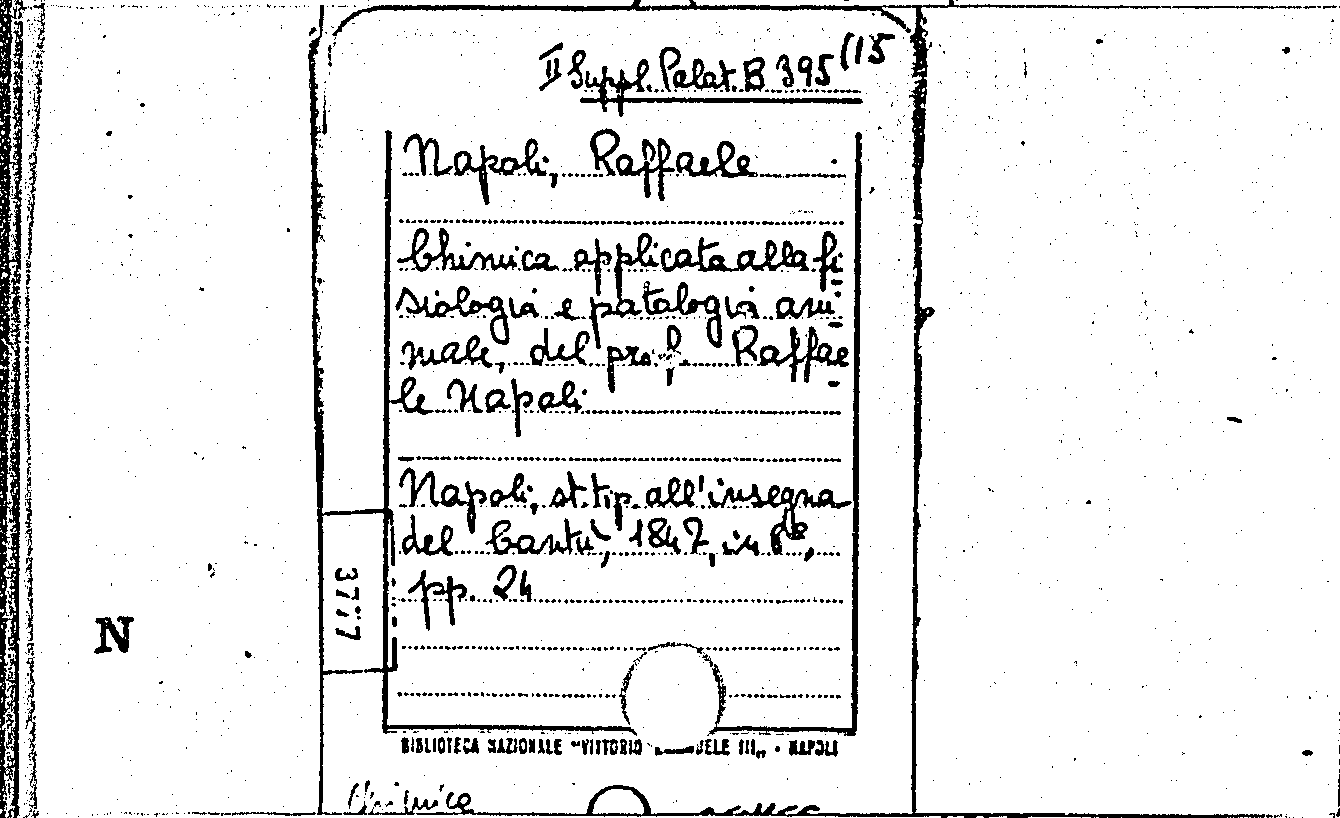 II Suppl. Palat. B 395 (15
Napoli, Raffaele
Chimica applicata alla fi-
siologia e patalogia ani-
male, del prof. Raffae-
le Napoli
Napoli, st. tip. all'insegna
del Cantù, 1847, in 8°,
pp. 24
3777
N
BIBLIOTECA NAZIONALE "VITTORIO ELE III„ - NAPOLI
Chimica